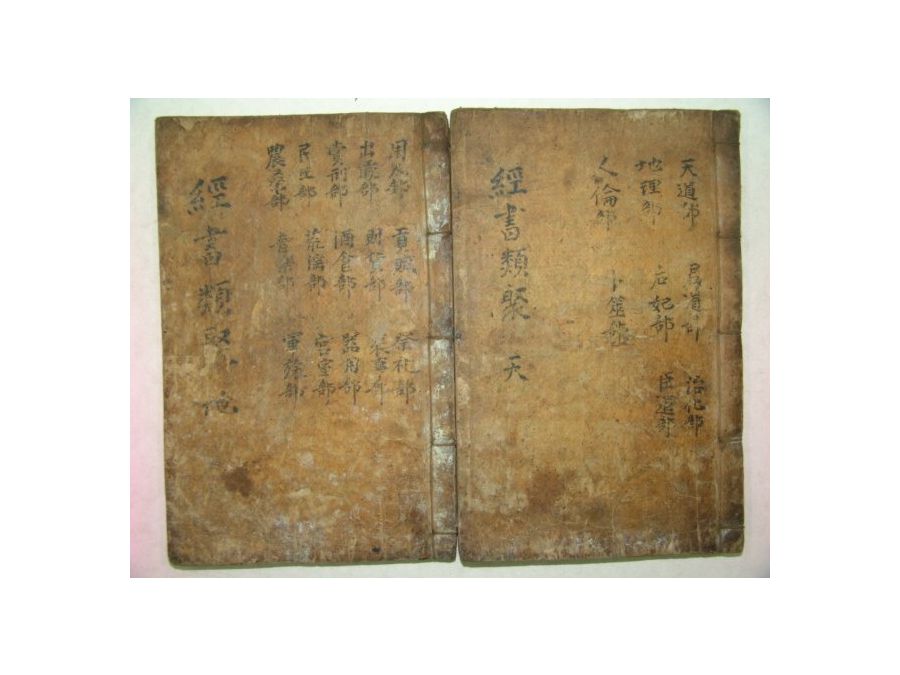 天道部
君道部
治化部
地理部
后妃部
臣道部
人倫部
卜筮部
經書類聚 天
用人部
貢賦部
祭礼部
出嚴部
財貨部
賞刑部
酒食部
器用部
民生部
荒滛部
宮室部
農桑部
音樂部
軍旅部
經書類聚 地